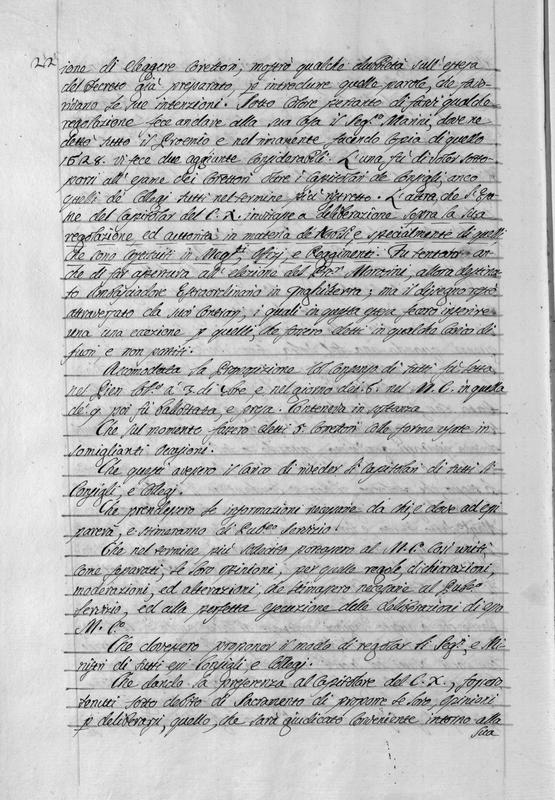 22
ione di eleggere Corettori, mostrò qualche dubbietà sull'estesa
del Decreto già preparato, p introdure quelle parole, che favo=
rivano le sue intenzioni. Sotto colore pertanto di farvi qualche
regolazione fece andare alla sua Casa il Seg.rio Marini, dove re=
dettò tutto il Proemio e nel rimanente facendo copia di quello
1628. vi fece due aggiunte considerabili. L'una fù di voler sotto=
porri all'esame dei Corettori oltre i Capitolari de Consigli, anco
quelli de Collegi tutti nel termine più ristretto. L'altra, che l'esa=
me del Capitolar del C. X. in materia di
regolazione ed autorità in materia de e specialmente di quelli
che sono costituiti in Mag.ti, Offizj, e Reggimenti. Fu tentato an=
che di far apertura all'elezione del Morosini, allora destina=
to Ambasciadore Estraordinario in Inghilterra; ma il disegno restò
attraversato da suoi Contrarj, i quali in questa estesa fecero inserire
una una eccezione p quelli, che fossero eletti in qualche carico di
fuori e non partiti.
Accomodata la Proposizione col consenso di tutti fù letta
nel Pien Coll.o à 3. di 7bre, e nel giorno dei 6. nel M. C. in quella
de' 9. poi fù ballottata, e presa. Conteneva in sostanza
Che sul momento fossero eletti 5. Coretori alle forme usate in
somiglianti Occasioni.
Che questi avessero il carico di riveder li Capitolari di tutti li
Consigli, e Collegi.
Che prendessero le informazioni necessarie da chi, e dove ad essi
parerà, e stimeranno di Pub.co Servizio.
Che nel termine più sollecito portassero al M. C. così uniti,
come separati, le loro opinioni, per quelle regole, dichiarazioni,
moderazioni, ed alterazioni, che stimassero necessarie al Pub.co
Servizio, ed alla perfetta esecuzione delle deliberazioni di questo
M. C.o
Che dovessero proponer il modo di regolar li Seg.rj, e Mi=
nistri di tutti essi Consigli, e Collegi.
Che dando la preferenza al Capitolare del C. X., fossero
tenuti sotto debito di Sacramento di proponer le loro opinioni
p deliberarsi, quello, che sarà giudicato conveniente intorno alla
sua